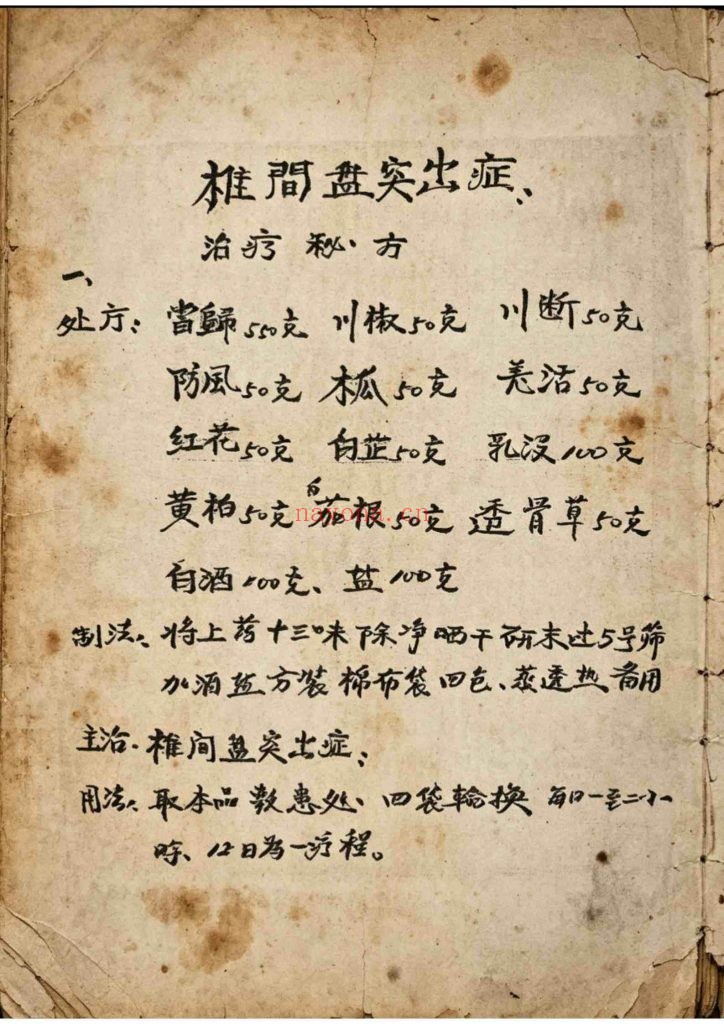 椎間盘突出症、
治疗秘方
一、
处方：當歸550克 川椒50克 川断50克
防風50克 木瓜50克 羌活50克
红花50克 白芷50克 乳没100克
黄柏50克 白茄根50克 透骨草50克
白酒100克、盐100克
制法：将上药十三味除净晒干研末过5号筛
加酒盐方装棉布袋四包、蒸透热备用
主治.椎间盘突出症、
用法：取本品敷患处、四袋轮换 每日一至二小
时、12日为一疗程。
nayona.cn